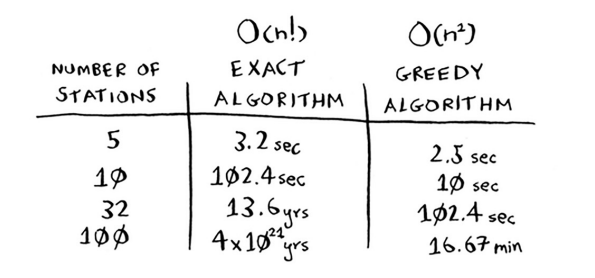 O(n!) O(n²)
NUMBER OF STATIONS EXACT ALGORITHM GREEDY ALGORITHM
5 3.2 sec 2.5 sec
10 102.4 sec 10 sec
32 13.6 yrs 102.4 sec
100 4x10²¹ yrs 16.67 min